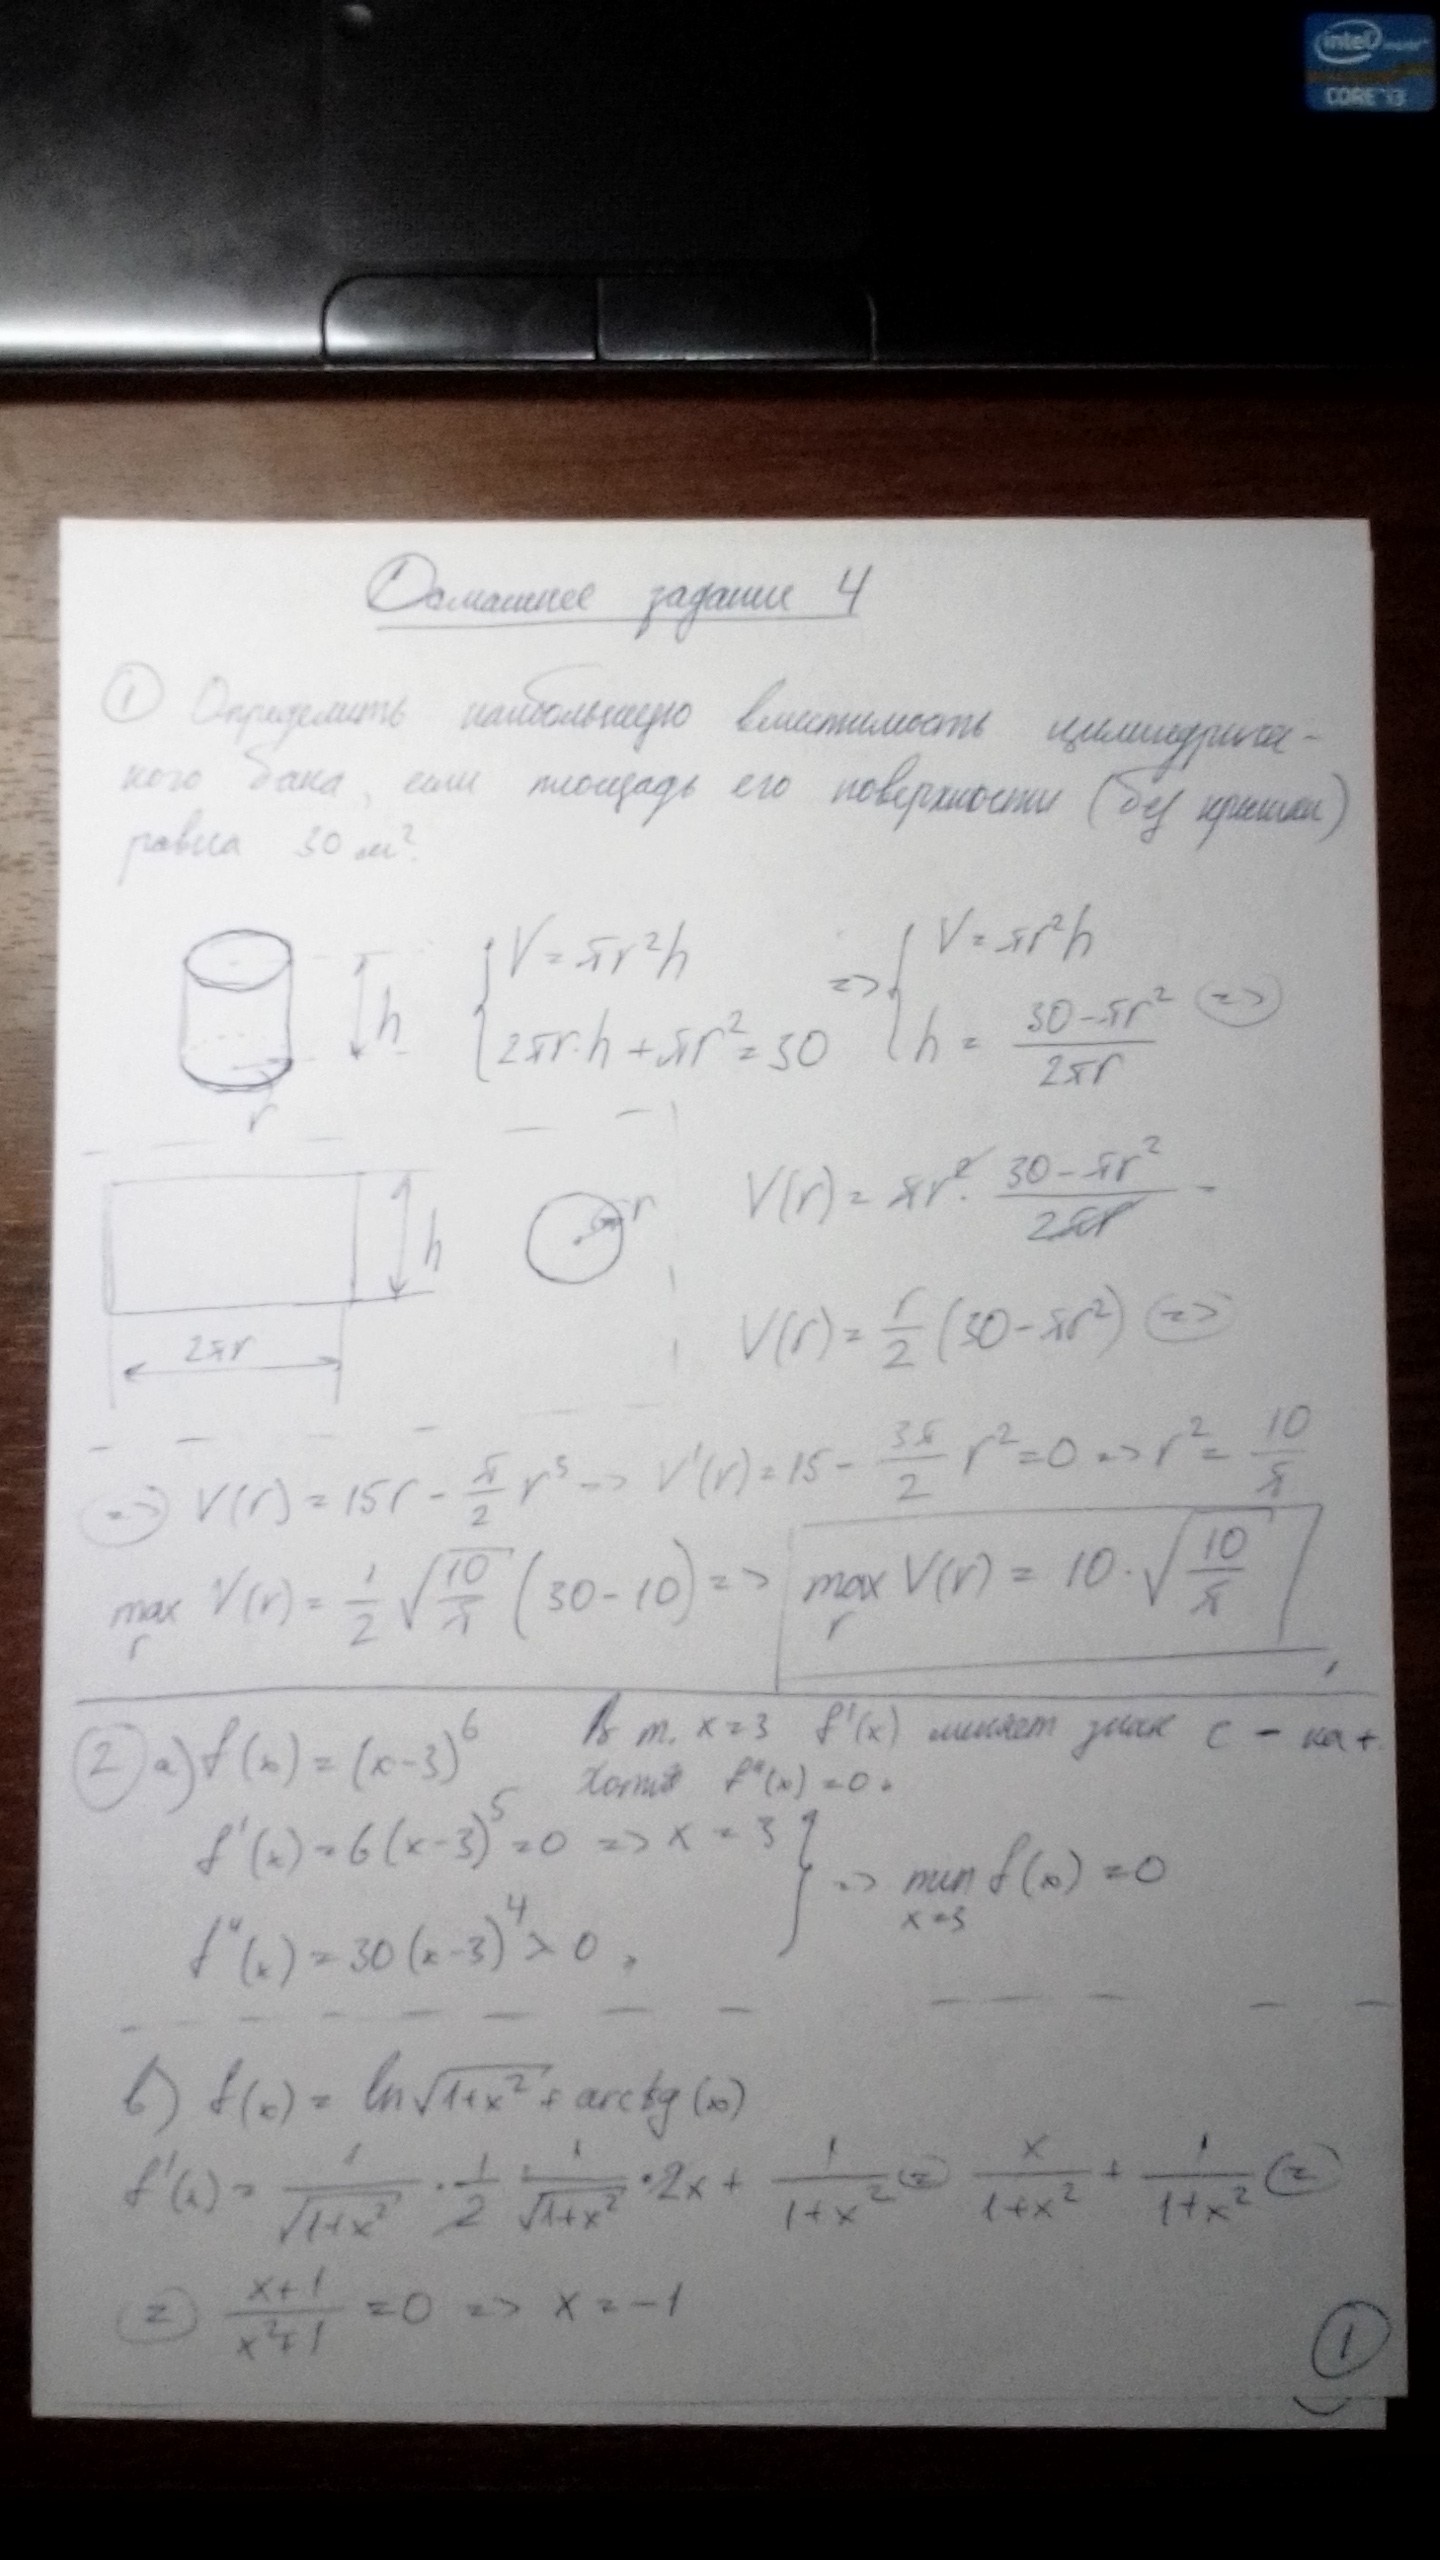 intel inside
CORE i3
Домашнее задание 4
① Определить наибольшую вместимость цилиндричес-
кого бака, если площадь его поверхности (без крышки)
равна 30 м².
{ V = πr²h
{ 2πr·h + πr² = 30
=> { V = πr²h
{ h = (30 - πr²)/(2πr) =>
h
r
h
2πr
r
V(r) = πr² · (30 - πr²)/(2πr) -
V(r) = r/2 (30 - πr²) =>
=> V(r) = 15r - π/2 r³ => V'(r) = 15 - 3π/2 r² = 0 => r² = 10/π
max r V(r) = 1/2 √(10/π) (30 - 10) => max r V(r) = 10 · √(10/π)
② а) f(x) = (x-3)⁶
В т. x = 3 f'(x) меняет знак с - на +.
Хотя f''(x) = 0.
f'(x) = 6(x-3)⁵ = 0 => x = 3
f''(x) = 30(x-3)⁴ > 0,
} => min x=3 f(x) = 0
в) f(x) = ln √(1+x²) + arctg(x)
f'(x) = 1/√(1+x²) · 1/2 1/√(1+x²) · 2x + 1/(1+x²) = x/(1+x²) + 1/(1+x²) =
= (x+1)/(x²+1) = 0 => x = -1
①